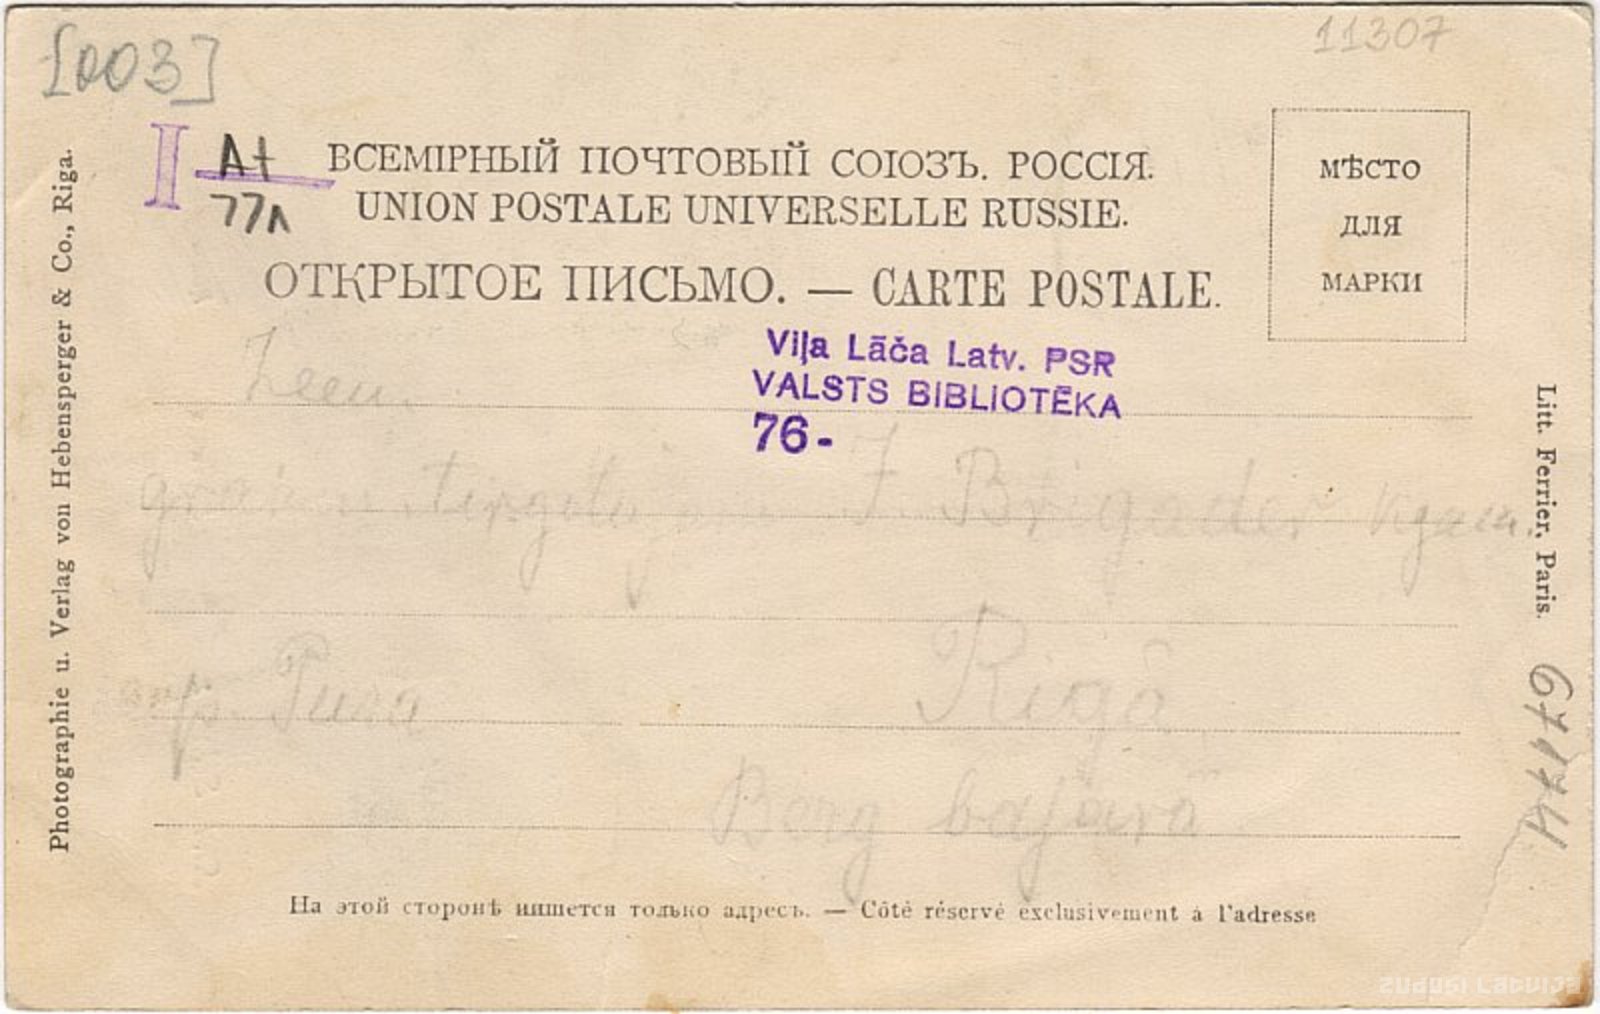 [003]
11307
I At
77л
ВСЕМІРНЫЙ ПОЧТОВЫЙ СОЮЗЪ. РОССІЯ.
UNION POSTALE UNIVERSELLE RUSSIE.
ОТКРЫТОЕ ПИСЬМО. — CARTE POSTALE.
МѢСТО
ДЛЯ
МАРКИ
Viļa Lāča Latv. PSR
VALSTS BIBLIOTĒKA
76-
J. Brigader kgam.
Rigā
Berg bajārā
На этой сторонѣ пишется только адресъ. — Côté réservé exclusivement à l'adresse
Photographie u. Verlag von Hebensperger & Co., Riga.
Litt. Ferrier, Paris.
zudusi Latvija